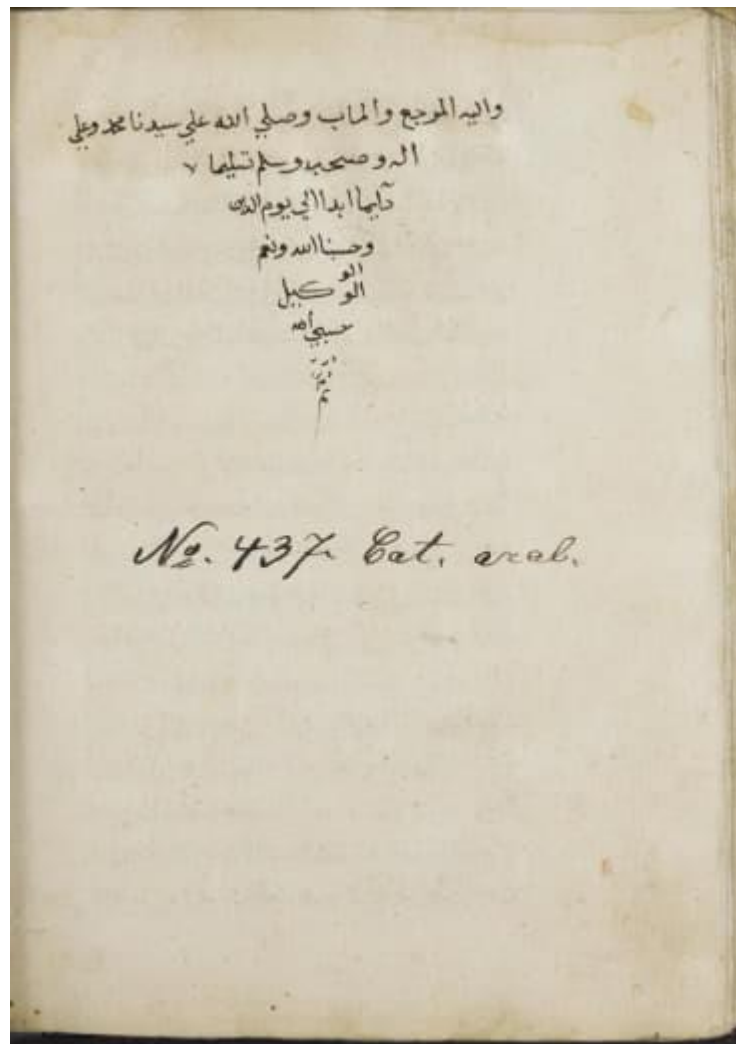 واليه المرجع والماب وصلي الله علي سيدنا محمد وعلي
اله وصحبه وسلم تسليما
دايما ابدا الي يوم الدين
وحسبنا الله ونعم
الو
الوكيل
حسبي الله
تم
No. 437. Cat. arab.